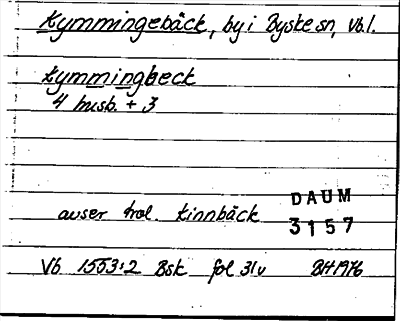 Kymmingebäck, by i Byske sn, Vb.l.
kymmingbeck
4 husb. + 3
avser trol. Kinnbäck
DAUM
3157
Vb 1553:2 Bsk fol 31v BH 1976